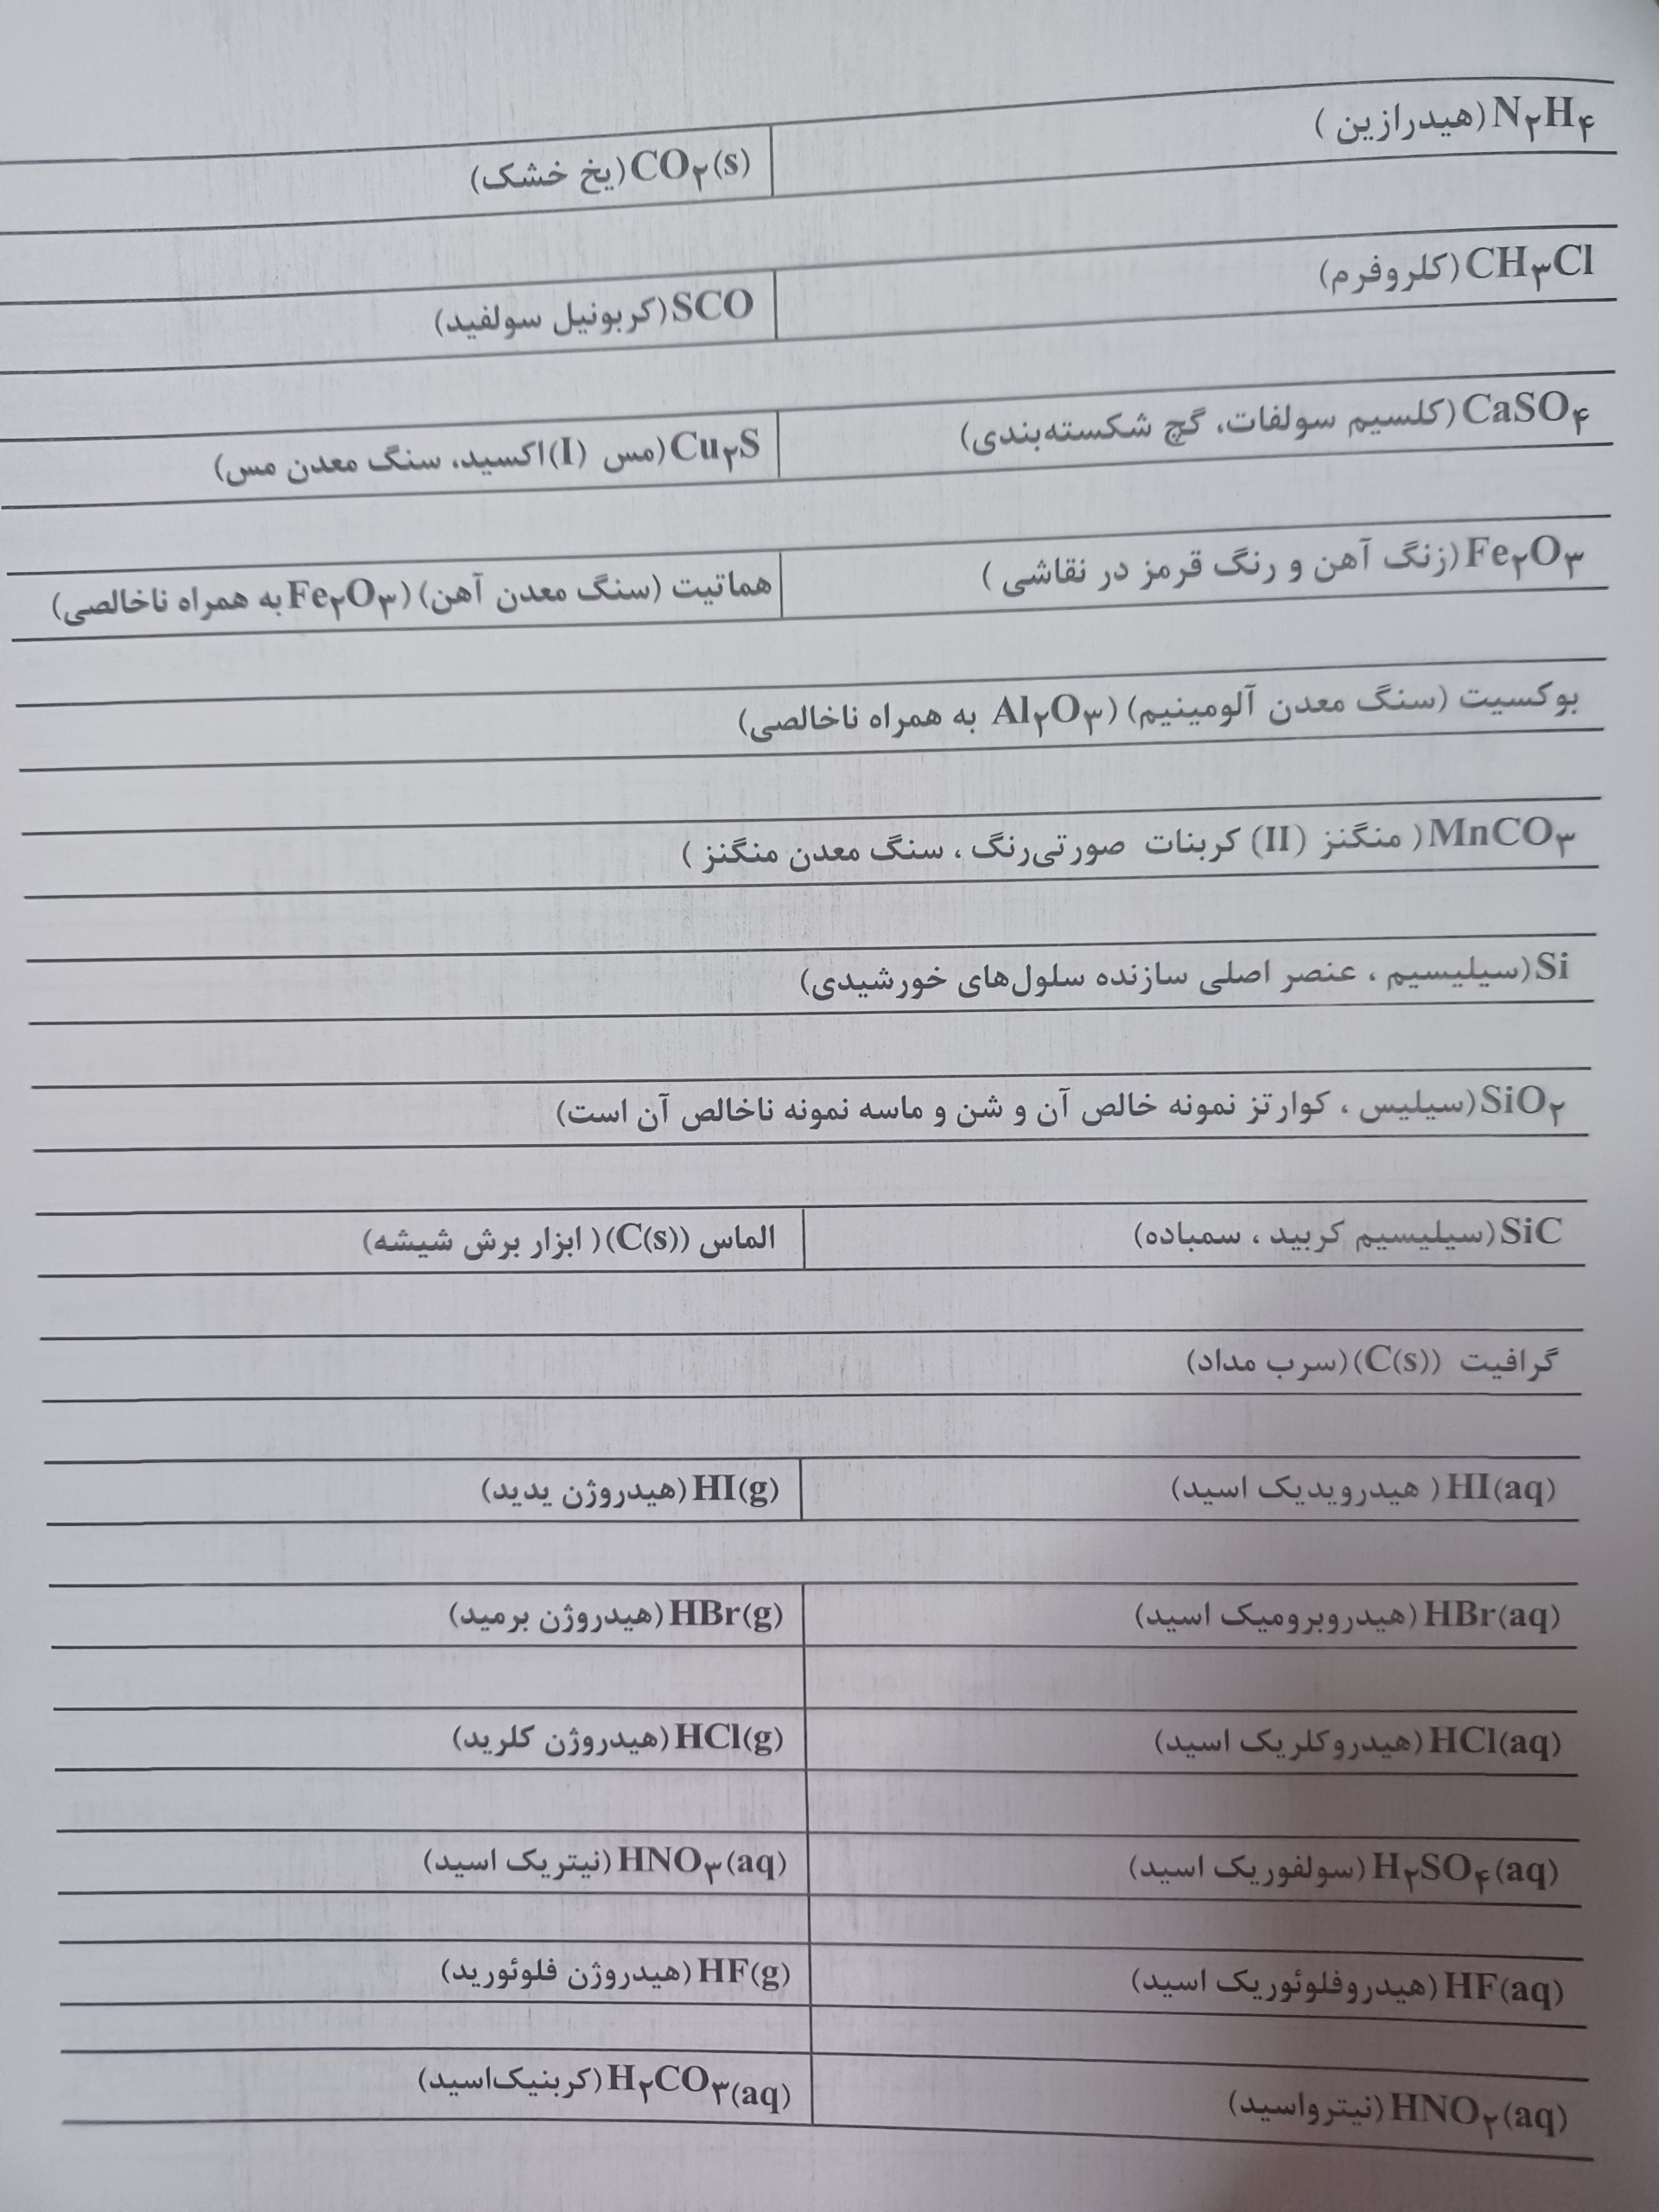 N۲H۴(هیدرازین )
CO۲(s)(یخ خشک)
CH۳Cl(کلروفرم)
SCO(کربونیل سولفید)
CaSO۴(کلسیم سولفات، گچ شکسته‌بندی)
Cu۲S(مس (I)اکسید، سنگ معدن مس)
Fe۲O۳(زنگ آهن و رنگ قرمز در نقاشی )
هماتیت (سنگ معدن آهن)(Fe۲O۳به همراه ناخالصی)
بوکسیت (سنگ معدن آلومینیم)(Al۲O۳ به همراه ناخالصی)
MnCO۳( منگنز (II) کربنات صورتی‌رنگ ، سنگ معدن منگنز )
Si(سیلیسیم ، عنصر اصلی سازنده سلول‌های خورشیدی)
SiO۲(سیلیس ، کوارتز نمونه خالص آن و شن و ماسه نمونه ناخالص آن است)
SiC(سیلیسیم کربید ، سمباده)
الماس (C(s))( ابزار برش شیشه)
گرافیت (C(s))(سرب مداد)
HI(aq)( هیدرویدیک اسید)
HI(g)(هیدروژن یدید)
HBr(aq)(هیدروبرومیک اسید)
HBr(g)(هیدروژن برمید)
HCl(aq)(هیدروکلریک اسید)
HCl(g)(هیدروژن کلرید)
H۲SO۴(aq)(سولفوریک اسید)
HNO۳(aq)(نیتریک اسید)
HF(aq)(هیدروفلوئوریک اسید)
HF(g)(هیدروژن فلوئورید)
HNO۲(aq)(نیترواسید)
H۲CO۳(aq)(کربنیک‌اسید)